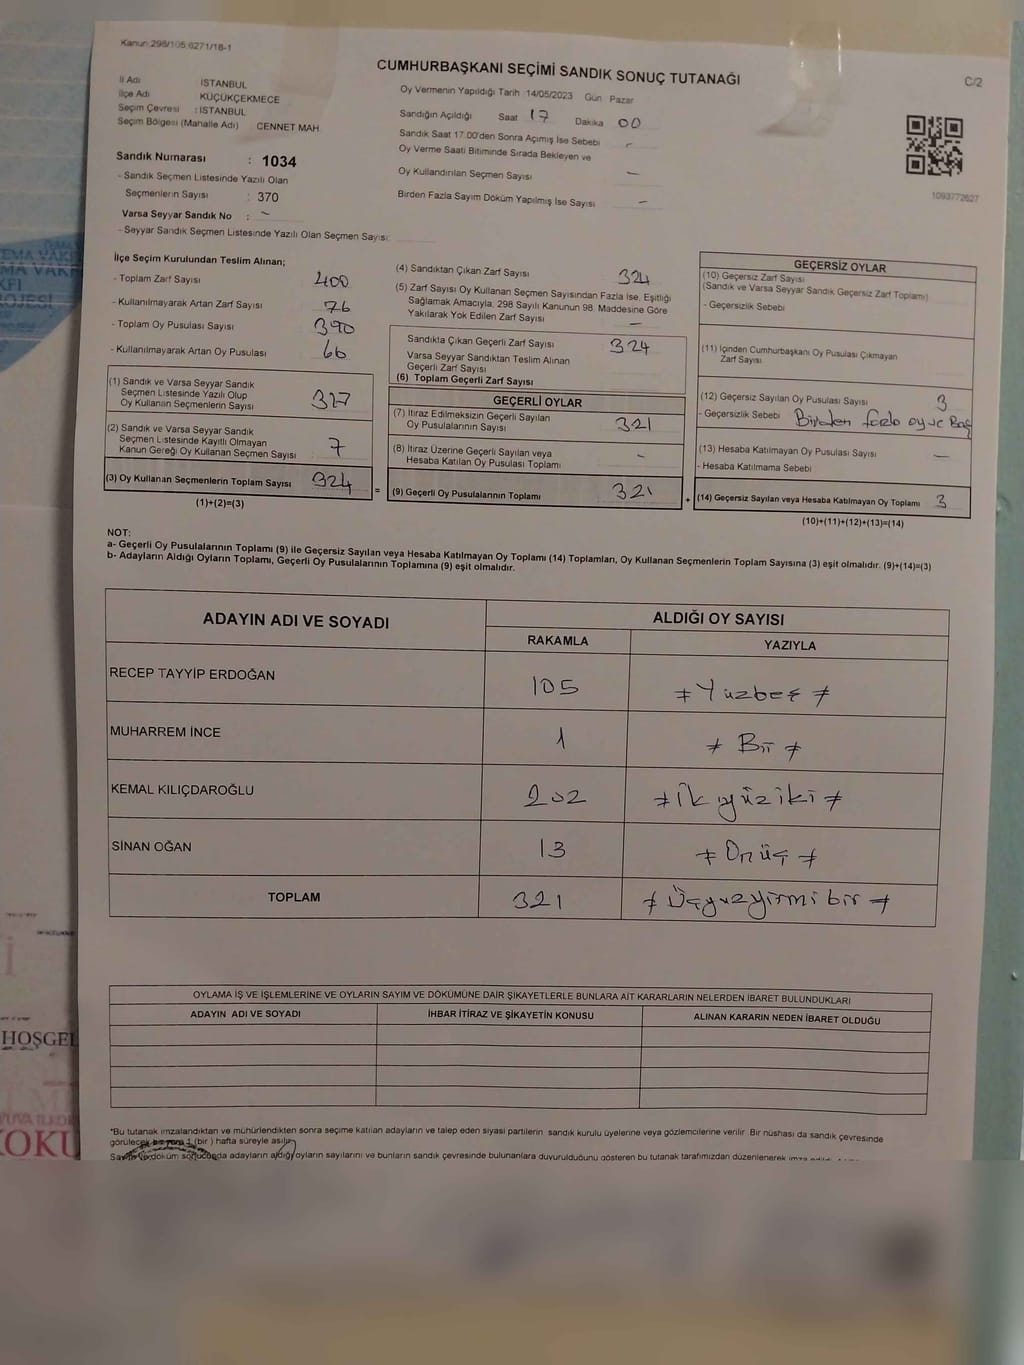 Kanun:298/105;6271/18-1
CUMHURBAŞKANI SEÇİMİ SANDIK SONUÇ TUTANAĞI
C/2
İl Adı İSTANBUL
İlçe Adı KÜÇÜKÇEKMECE
Seçim Çevresi : İSTANBUL
Seçim Bölgesi (Mahalle Adı) CENNET MAH.
Sandık Numarası : 1034
- Sandık Seçmen Listesinde Yazılı Olan
Seçmenlerin Sayısı : 370
Varsa Seyyar Sandık No : -
- Seyyar Sandık Seçmen Listesinde Yazılı Olan Seçmen Sayısı:
Oy Vermenin Yapıldığı Tarih :14/05/2023 Gün Pazar
Sandığın Açıldığı Saat 17 Dakika 00
Sandık Saat 17:00'den Sonra Açımış İse Sebebi -
Oy Verme Saati Bitiminde Sırada Bekleyen ve
Oy Kullandırılan Seçmen Sayısı -
Birden Fazla Sayım Döküm Yapılmış İse Sayısı -
1093772627
İlçe Seçim Kurulundan Teslim Alınan;
- Toplam Zarf Sayısı 400
- Kullanılmayarak Artan Zarf Sayısı 76
- Toplam Oy Pusulası Sayısı 390
- Kullanılmayarak Artan Oy Pusulası 66
(1) Sandık ve Varsa Seyyar Sandık
Seçmen Listesinde Yazılı Olup
Oy Kullanan Seçmenlerin Sayısı 317
(2) Sandık ve Varsa Seyyar Sandık
Seçmen Listesinde Kayıtlı Olmayan
Kanun Gereği Oy Kullanan Seçmen Sayısı 7
(3) Oy Kullanan Seçmenlerin Toplam Sayısı 324
(1)+(2)=(3)
(4) Sandıktan Çıkan Zarf Sayısı 324
(5) Zarf Sayısı Oy Kullanan Seçmen Sayısından Fazla İse, Eşitliği
Sağlamak Amacıyla, 298 Sayılı Kanunun 98. Maddesine Göre
Yakılarak Yok Edilen Zarf Sayısı -
Sandıkta Çıkan Geçerli Zarf Sayısı 324
Varsa Seyyar Sandıktan Teslim Alınan
Geçerli Zarf Sayısı
(6) Toplam Geçerli Zarf Sayısı
GEÇERLİ OYLAR
(7) İtiraz Edilmeksizin Geçerli Sayılan
Oy Pusulalarının Sayısı 321
(8) İtiraz Üzerine Geçerli Sayılan veya
Hesaba Katılan Oy Pusulası Toplamı -
= (9) Geçerli Oy Pusulalarının Toplamı 321
GEÇERSİZ OYLAR
(10) Geçersiz Zarf Sayısı
(Sandık ve Varsa Seyyar Sandık Geçersiz Zarf Toplamı)
- Geçersizlik Sebebi
(11) İçinden Cumhurbaşkanı Oy Pusulası Çıkmayan
Zarf Sayısı
(12) Geçersiz Sayılan Oy Pusulası Sayısı 3
- Geçersizlik Sebebi Birden fazla oy ve Boş
(13) Hesaba Katılmayan Oy Pusulası Sayısı -
- Hesaba Katılmama Sebebi
+ (14) Geçersiz Sayılan veya Hesaba Katılmayan Oy Toplamı 3
(10)+(11)+(12)+(13)=(14)
NOT:
a- Geçerli Oy Pusulalarının Toplamı (9) ile Geçersiz Sayılan veya Hesaba Katılmayan Oy Toplamı (14) Toplamları, Oy Kullanan Seçmenlerin Toplam Sayısına (3) eşit olmalıdır. (9)+(14)=(3)
b- Adayların Aldığı Oyların Toplamı, Geçerli Oy Pusulalarının Toplamına (9) eşit olmalıdır.
ADAYIN ADI VE SOYADI ALDIĞI OY SAYISI
RAKAMLA YAZIYLA
RECEP TAYYİP ERDOĞAN 105 ≠ Yüzbeş ≠
MUHARREM İNCE 1 ≠ Bir ≠
KEMAL KILIÇDAROĞLU 202 ≠ İkiyüziki ≠
SİNAN OĞAN 13 ≠ Onüç ≠
TOPLAM 321 ≠ Üçyüzyirmi bir ≠
OYLAMA İŞ VE İŞLEMLERİNE VE OYLARIN SAYIM VE DÖKÜMÜNE DAİR ŞİKAYETLERLE BUNLARA AİT KARARLARIN NELERDEN İBARET BULUNDUKLARI
ADAYIN ADI VE SOYADI İHBAR İTİRAZ VE ŞİKAYETİN KONUSU ALINAN KARARIN NEDEN İBARET OLDUĞU
*Bu tutanak imzalandıktan ve mühürlendikten sonra seçime katılan adayların ve talep eden siyasi partilerin sandık kurulu üyelerine veya gözlemcilerine verilir. Bir nüshası da sandık çevresinde
görülecek bir yere 1 (bir) hafta süreyle asılır.
döküm sonucunda adayların aldığı oyların sayılarını ve bunların sandık çevresinde bulunanlara duyurulduğunu gösteren bu tutanak tarafımızdan düzenlenerek
HOŞGEL
OKU